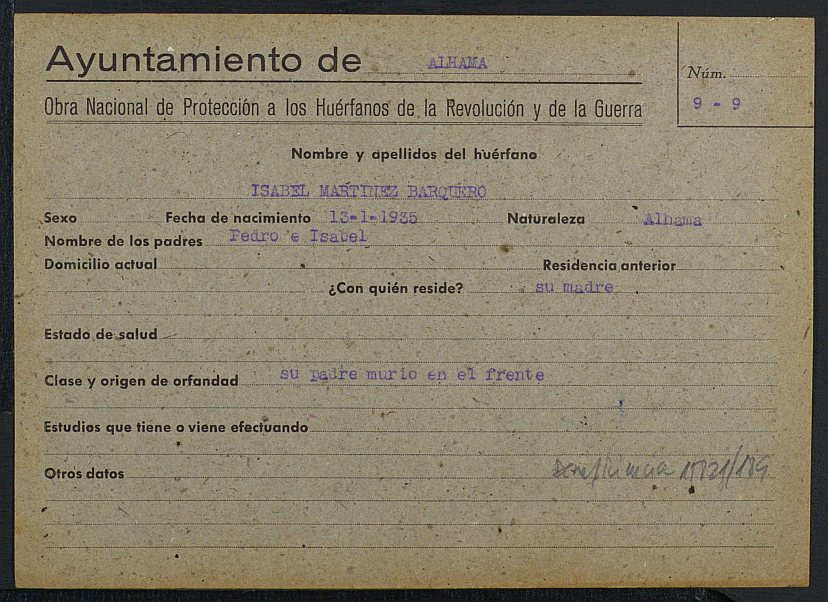 Ayuntamiento de ALHAMA
Núm.
9 - 9
Obra Nacional de Protección a los Huérfanos de la Revolución y de la Guerra
Nombre y apellidos del huérfano
ISABEL MARTINEZ BARQUERO
Sexo Fecha de nacimiento 13-1-1935 Naturaleza Alhama
Nombre de los padres Pedro e Isabel
Domicilio actual Residencia anterior
¿Con quién reside? su madre
Estado de salud
Clase y origen de orfandad su padre murio en el frente
Estudios que tiene o viene efectuando
Otros datos